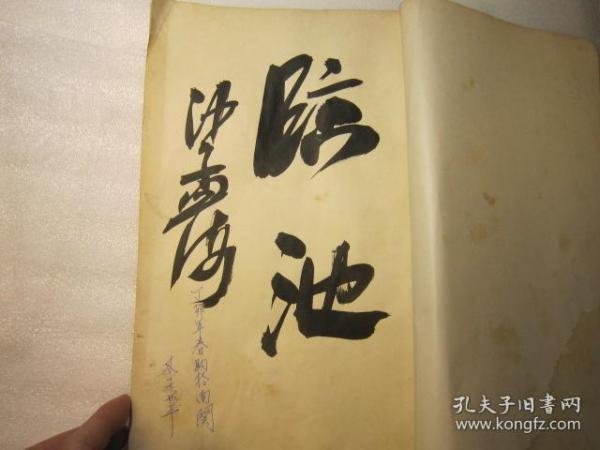 临池
沙孟海
丁卯年春购於南闽
孔夫子旧书网
www.kongfz.com